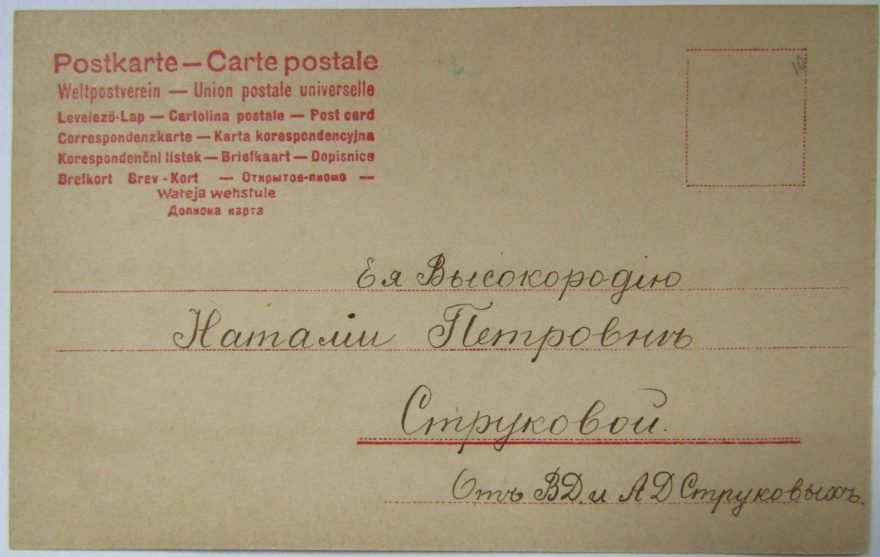 Postkarte — Carte postale
Weltpostverein — Union postale universelle
Levelező-Lap — Cartolina postale — Post card
Correspondenzkarte — Karta korespondencyjna
Korespondenční lístek — Briefkaart — Dopisnice
Brefkort Brev-Kort — Открытое-письмо —
Wateja wehstule
Дописна карта
Ея Высокородію
Наталіи Петровнѣ
Струковой.
Отъ В Д. и А Д Струковыхъ.